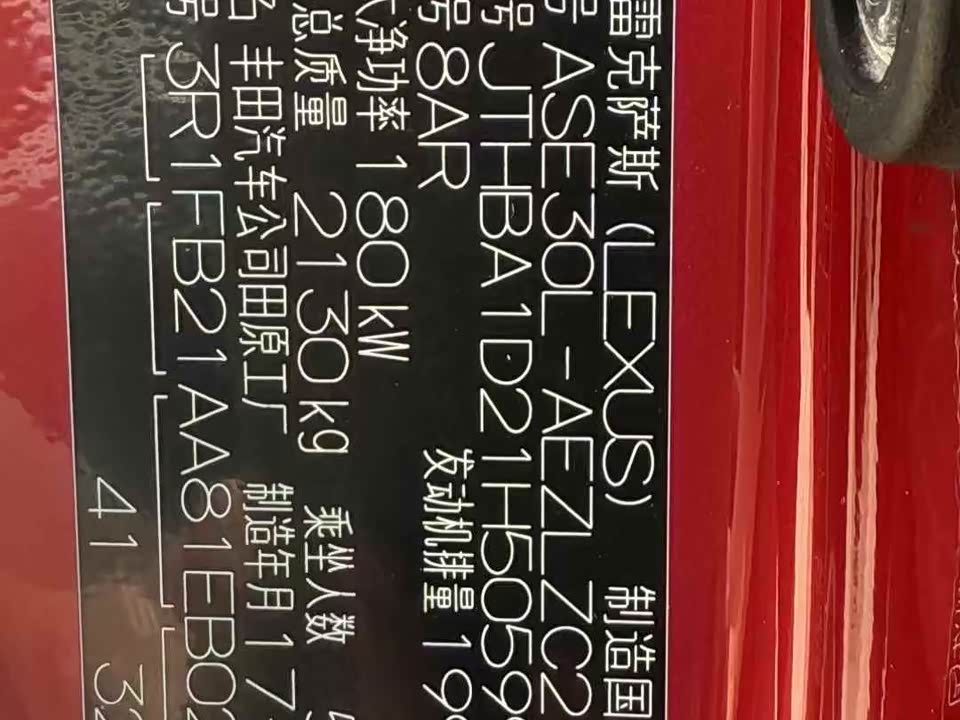 雷克萨斯 (LEXUS) 制造国
号 ASE30L-AEZLZC2
号 JTHBA1D21H5059
号 8AR 发动机排量 19
净功率 180kW
总质量 2130kg 乘坐人数 5
名 丰田汽车公司田原工厂 制造年月 17
号 3R1FB21AA81EB02
41 32